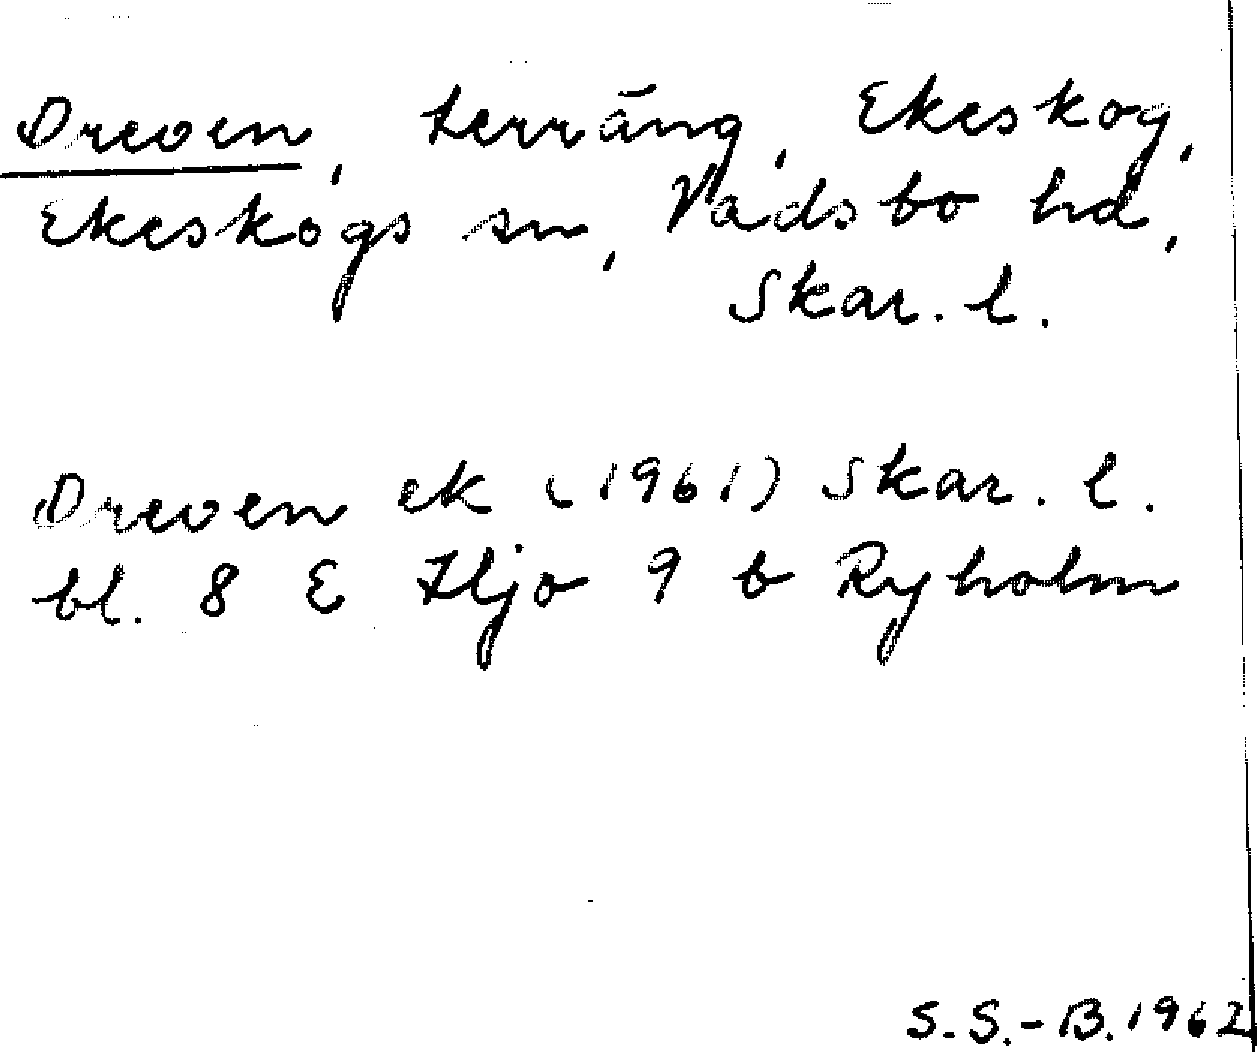 Dreven, terräng, Ekeskog,
Ekeskogs sn, Vadsbo hd,
Skar. l.
Dreven ek (1961) Skar. l.
bl. 8 E Hjo 9 b Ryholm
S.S.-B. 1962